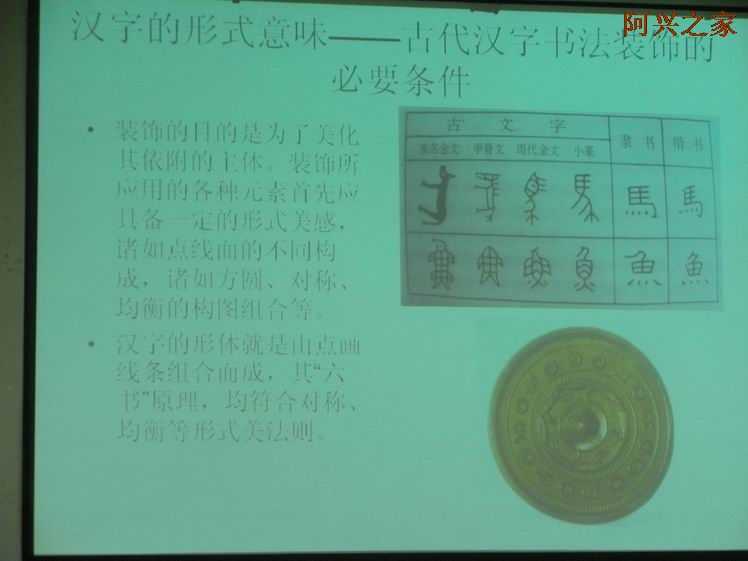 阿兴之家
汉字的形式意味——古代汉字书法装饰的
必要条件
• 装饰的目的是为了美化
其依附的主体。装饰所
应用的各种元素首先应
具备一定的形式美感，
诸如点线面的不同构
成，诸如方圆、对称、
均衡的构图组合等。
• 汉字的形体就是由点画
线条组合而成，其“六
书”原理，均符合对称、
均衡等形式美法则。
古 文 字 隶书 楷书
甲骨文 周代金文 小篆
馬 馬
魚 魚